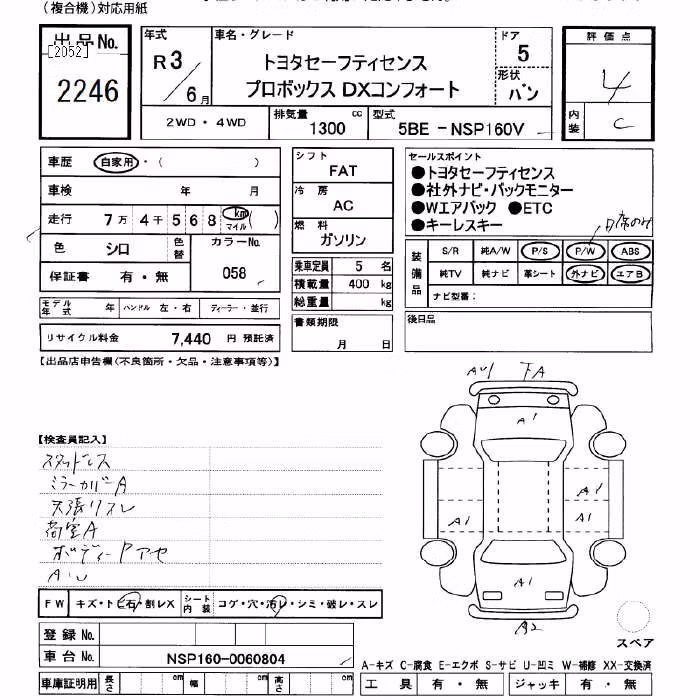 (複合機)対応用紙
出品No.
[2052]
2246
年式
R3/6月
車名・グレード
トヨタセーフティセンス
プロボックス DXコンフォート
ドア
5
形状
バン
2WD・4WD
排気量
1300 cc
型式
5BE-NSP160V
評価点
4
内装
C
車歴 自家用・( )
車検 年 月
走行 7万4千568 km マイル ( )
色 シロ 色替 カラーNo.
058
保証書 有・無
モデル年式 年 ハンドル 左・右 ディーラー・並行
リサイクル料金 7,440 円 預託済
シフト
FAT
冷房
AC
燃料
ガソリン
乗車定員 5 名
積載量 400 kg
総重量 kg
書類期限
月 日
セールスポイント
●トヨタセーフティセンス
●社外ナビ・バックモニター
●Wエアバック ●ETC
●キーレスキー
装備品
S/R 純A/W P/S P/W ABS
純TV 純ナビ 革シート 外ナビ エアB
ナビ型番:
後日品
【出品店申告欄(不良箇所・欠品・注意事項等)】
【検査員記入】
スタッドレス
ミラーカバーA
天張リスレ
荷室A
ボディーPアセ
AU1 下A
A1
A1
A1
A1
A1
A2
スペア
FW キズ・トビ石・割レX シート内装 コゲ・穴・汚レ・シミ・破レ・スレ
登録No.
車台No. NSP160-0060804
車庫証明用 長さ cm 幅 cm 高さ cm
A-キズ C-腐食 E-エクボ S-サビ U-凹ミ W-補修 XX-交換済
工具 有・無 ジャッキ 有・無